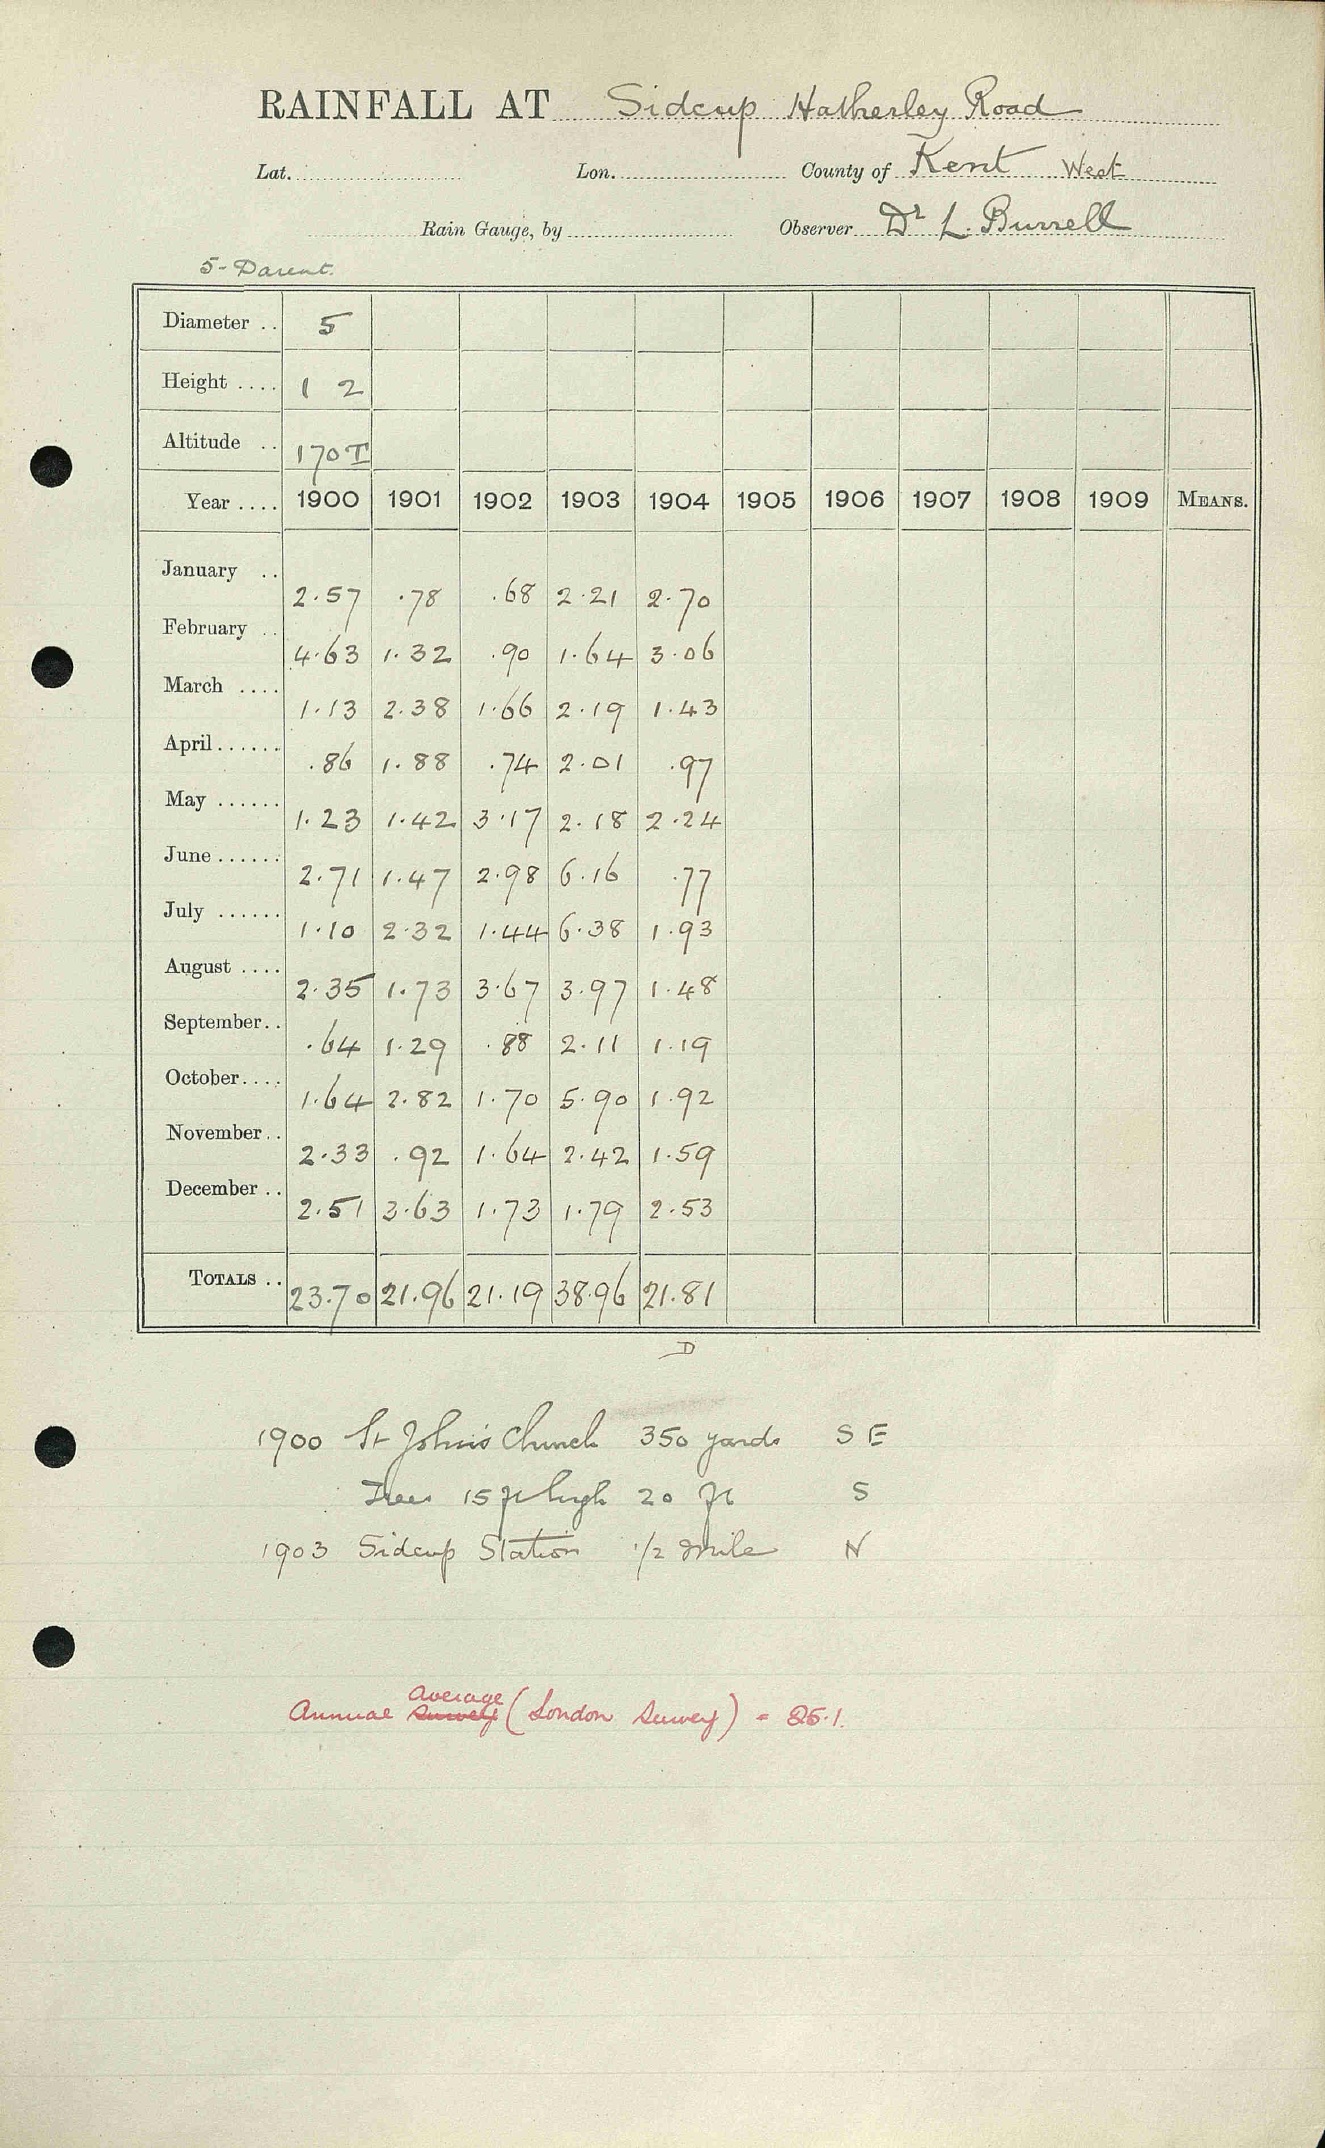 RAINFALL AT Sidcup Hatherley Road
Lat. Lon. County of Kent West
Rain Gauge, by Observer Dr L. Burrell
5- Darent.
Diameter .. 5
Height .... 1 2
Altitude .. 170 T
Year .... 1900 1901 1902 1903 1904 1905 1906 1907 1908 1909 MEANS.
January .. 2.57 .78 .68 2.21 2.70
February .. 4.63 1.32 .90 1.64 3.06
March .... 1.13 2.38 1.66 2.19 1.43
April...... .86 1.88 .74 2.01 .97
May ...... 1.23 1.42 3.17 2.18 2.24
June...... 2.71 1.47 2.98 6.16 .77
July ...... 1.10 2.32 1.44 6.38 1.93
August .... 2.35 1.73 3.67 3.97 1.48
September.. .64 1.29 .88 2.11 1.19
October.... 1.64 2.82 1.70 5.90 1.92
November.. 2.33 .92 1.64 2.42 1.59
December .. 2.51 3.63 1.73 1.79 2.53
TOTALS .. 23.70 21.96 21.19 38.96 21.81
D
1900 St John's Church 350 yards S E
Trees 15 ft high 20 ft S
1903 Sidcup Station 1/2 mile N
average
Annual Survey (London Survey) = 25.1.